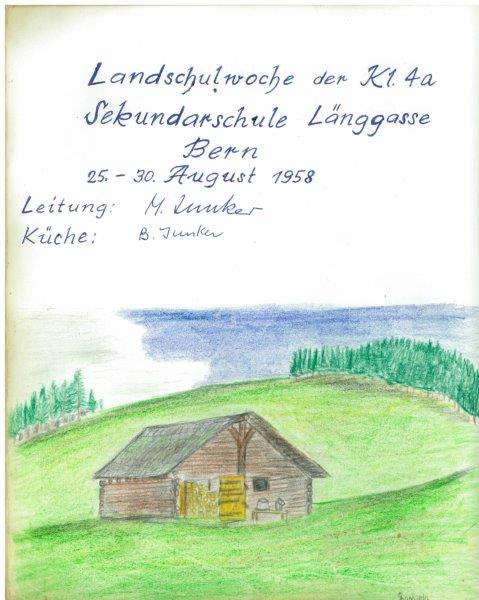 Landschulwoche der Kl. 4a
Sekundarschule Länggasse
Bern
25. - 30. August 1958
Leitung: M. Junker
Küche: B. Junker